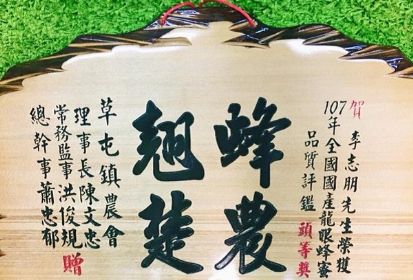 賀 李志朋先生榮獲
107年全國國產龍眼蜂蜜
品質評鑑 頭等獎
蜂農
翹楚
草屯鎮農會
理事長陳文忠
常務監事洪俊規
總幹事蕭忠郁 贈